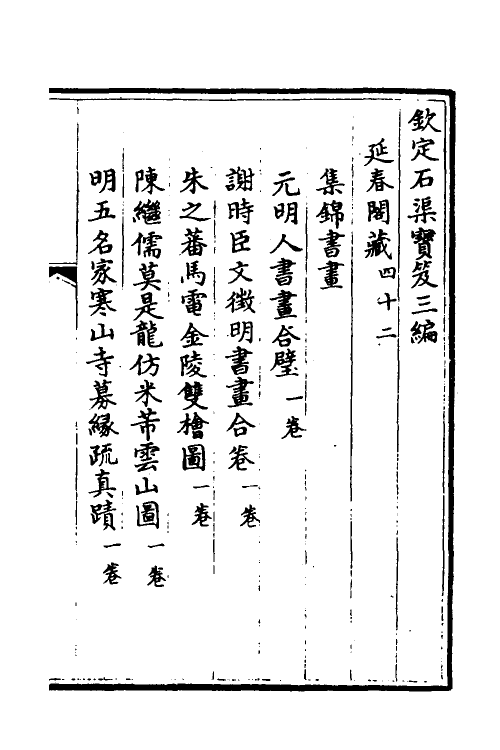 欽定石渠寶笈三編
延春閣藏四十二
集錦書畫
元明人書畫合璧一卷
謝時臣文徵明書畫合卷一卷
朱之蕃馬電金陵雙檜圖一卷
陳繼儒莫是龍仿米芾雲山圖一卷
明五名家寒山寺募緣疏真蹟一卷